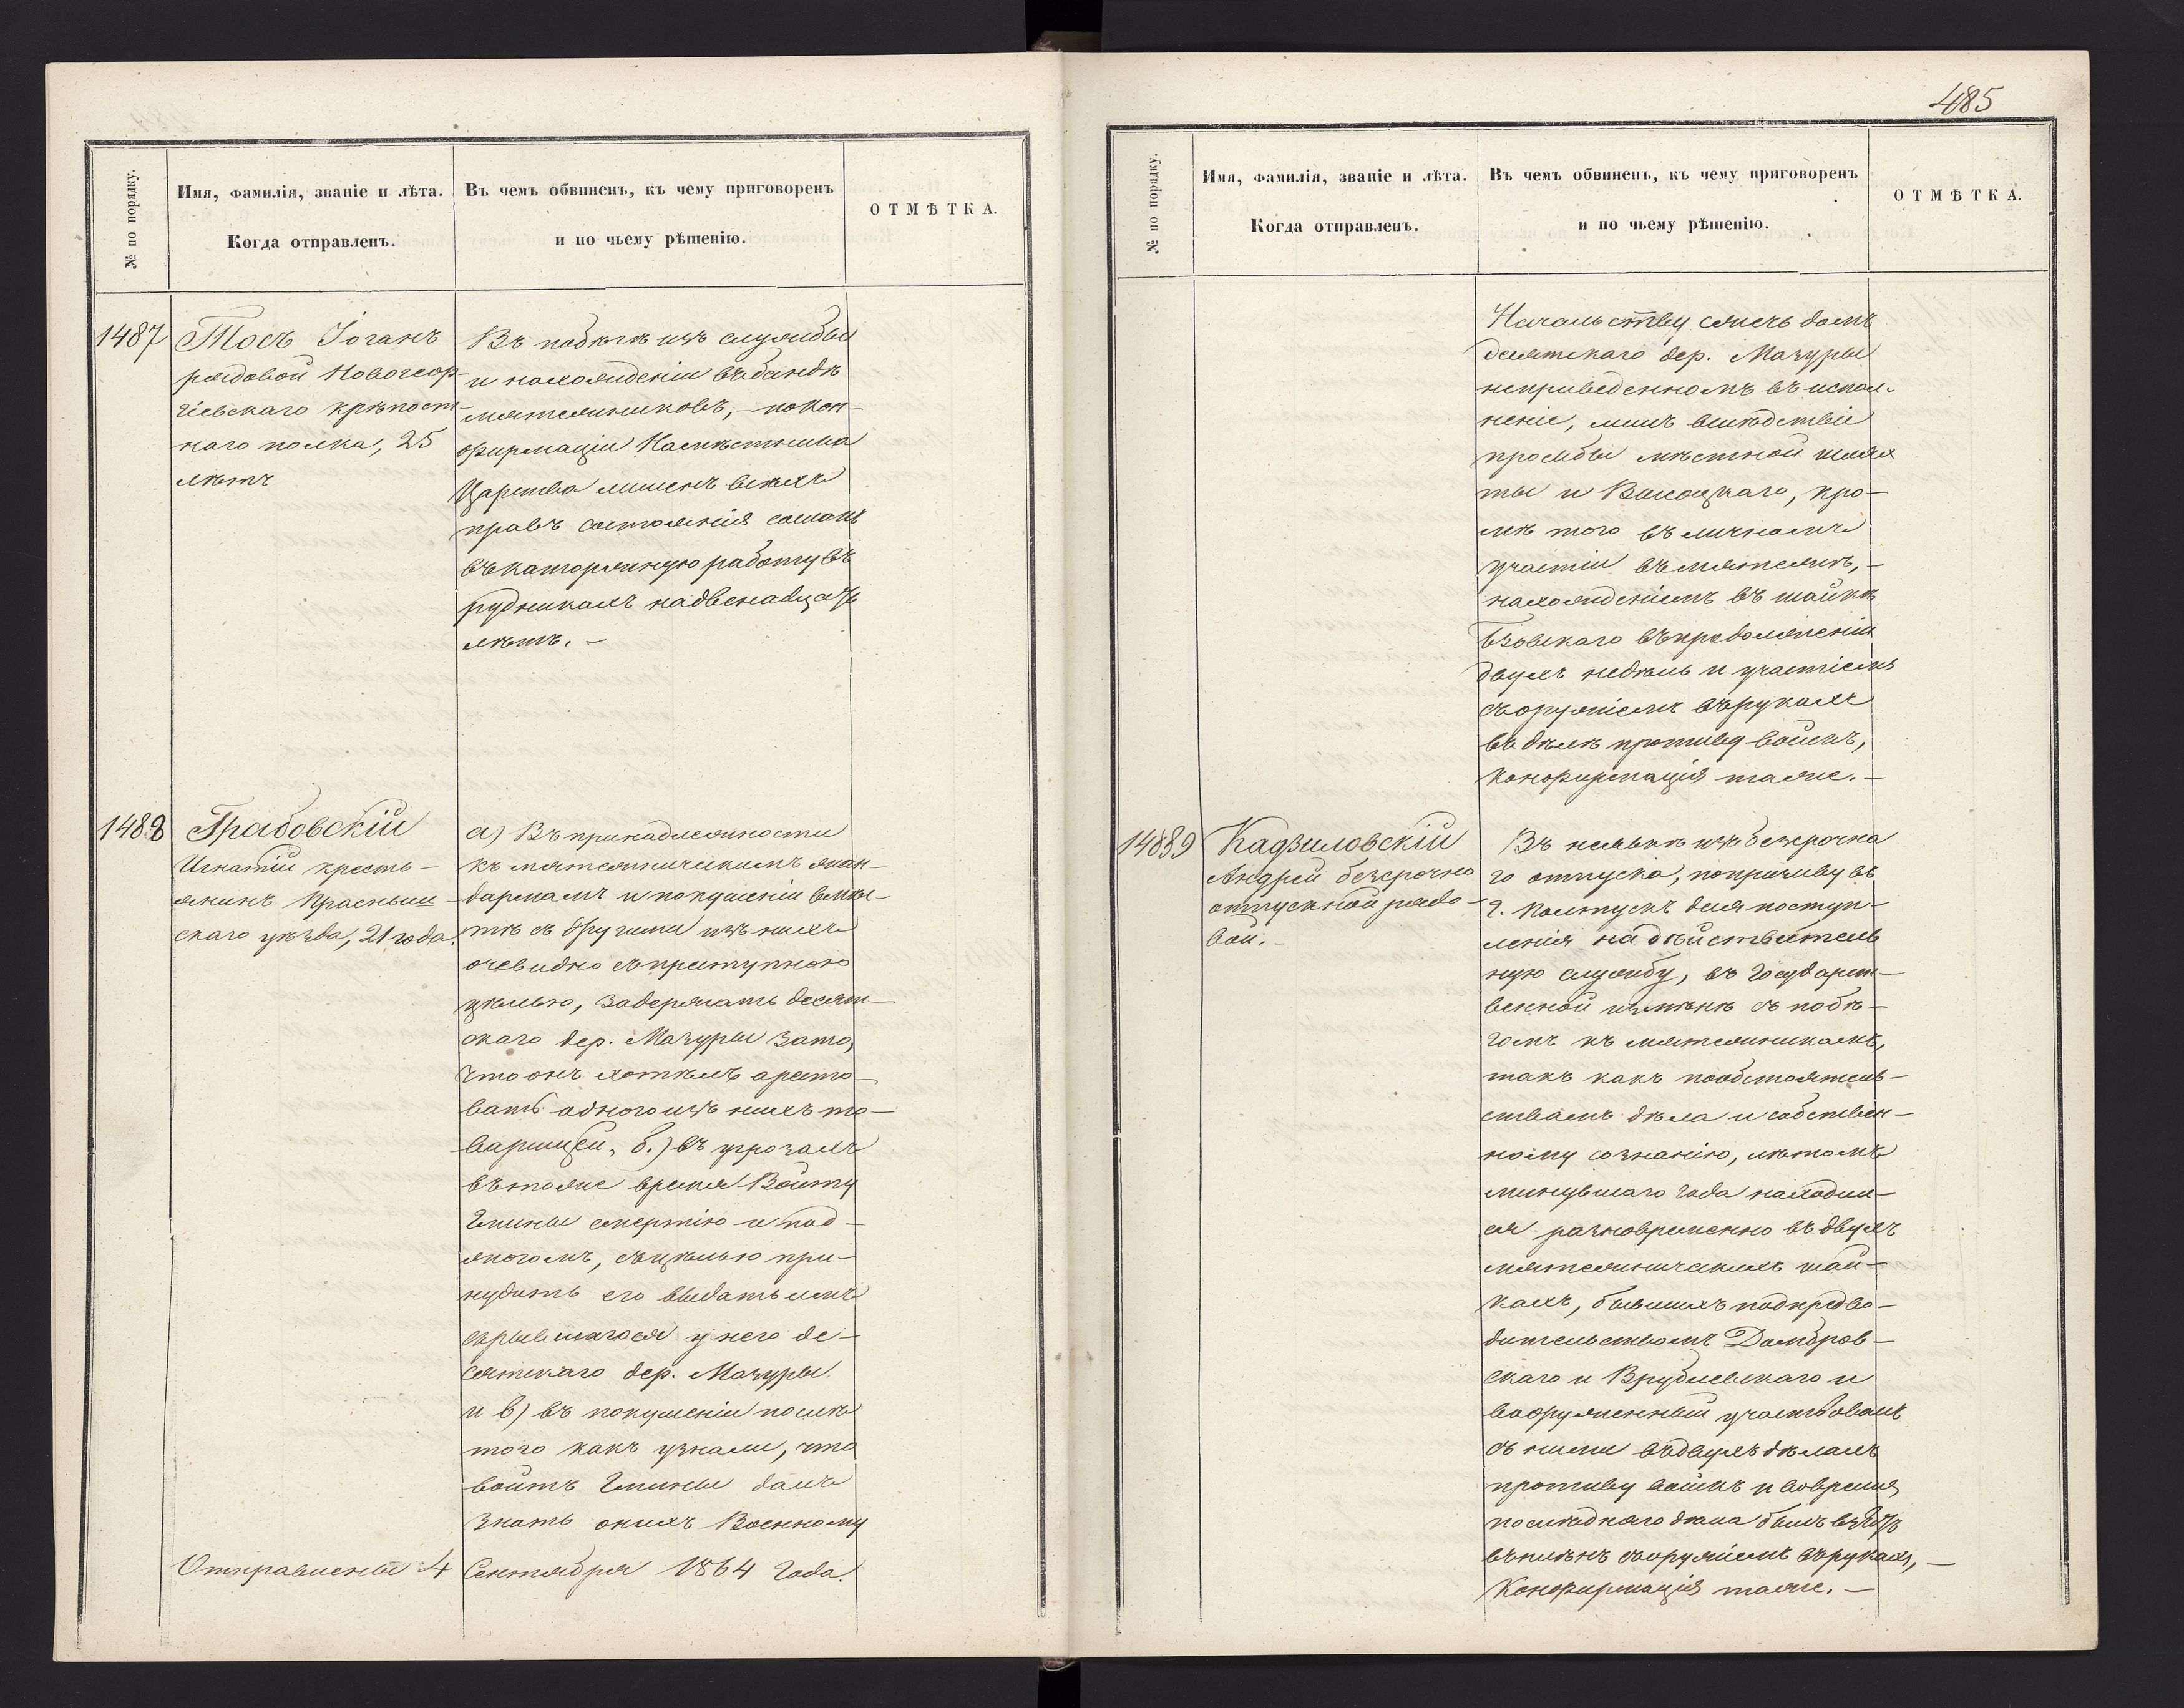 485
№ по порядку.
Имя, фамилія, званіе и лѣта.
Когда отправленъ.
Въ чемъ обвиненъ, къ чему приговоренъ
и по чьему рѣшенію.
ОТМѢТКА.
1487
Тосъ Іоганъ
рядовой Новогеор-
гіевскаго крѣпост-
наго полка, 25
лѣтъ
Въ побѣгѣ изъ службы
и нахожденіи въ бандѣ
мятежниковъ, по кон-
фирмаціи Намѣстника
Царства лишенъ всѣхъ
правъ состоянія сосланъ
въ каторжную работу въ
рудникахъ на двенадцать
лѣтъ. –
1488
Грабовскій
Игнатій кресть-
янинъ Прасныш-
скаго уѣзда, 21 года.
а) Въ принадлежности
къ мятежническимъ жан-
дармамъ и покушеніи вмѣс-
тѣ съ другими изъ нихъ
очевидно съ преступною
цѣлью, задержать десят-
скаго дер. Мазуры за то,
что онъ хотѣлъ аресто-
вать одного изъ нихъ то-
варищей, б.) въ угрозахъ
въ тоже время Войту
Гмины смертію и под-
жогомъ, съ цѣлью при-
нудить его выдать имъ
скрывшагося у него де-
сятскаго дер. Мазуры
и в) въ покушеніи послѣ
того какъ узнали, что
войтъ Гмины далъ
знать о нихъ Военному
Отправлены 4 Сентября 1864 года.
№ по порядку.
Имя, фамилія, званіе и лѣта.
Когда отправленъ.
Въ чемъ обвиненъ, къ чему приговоренъ
и по чьему рѣшенію.
ОТМѢТКА.
Начальству сжечь домъ
десятскаго дер. Мазуры
неприведенномъ въ испол-
неніе, лишь вслѣдствіе
просьбы мѣстной шлях
ты и Высоцкаго, кро-
мѣ того въ личномъ
участіи въ мятежѣ, –
нахожденіемъ въ шайкѣ
въ продолженіи
двухъ недѣль и участіемъ
съ оружіемъ въ рукахъ
въ дѣлѣ противу войскъ,
Конфирмація таже. –
1489
Кадзиловскій
Андрей безсрочно
отпускной рядо-
вой. –
Въ неявкѣ изъ безсрочна
го отпуска, по призыву въ
г. Полтускъ для поступ-
ленія на дѣйствитель
ную службу, въ Государст-
венной измѣнѣ съ побѣ-
гомъ къ мятежникамъ,
такъ какъ по обстоятель-
ствамъ дѣла и собствен-
ному сознанію, лѣтомъ
минувшаго года находил-
ся разновременно въ двухъ
мятежническихъ шай-
кахъ, бывшихъ подъ предво-
дительствомъ Домбров-
скаго и Врублевскаго и
вооруженный участвовалъ
съ ними въ двухъ дѣлахъ
противу войскъ и во время
послѣдняго дѣла былъ взятъ
въ плѣнъ съ оружіемъ въ рукахъ, –
Конфирмація таже. –